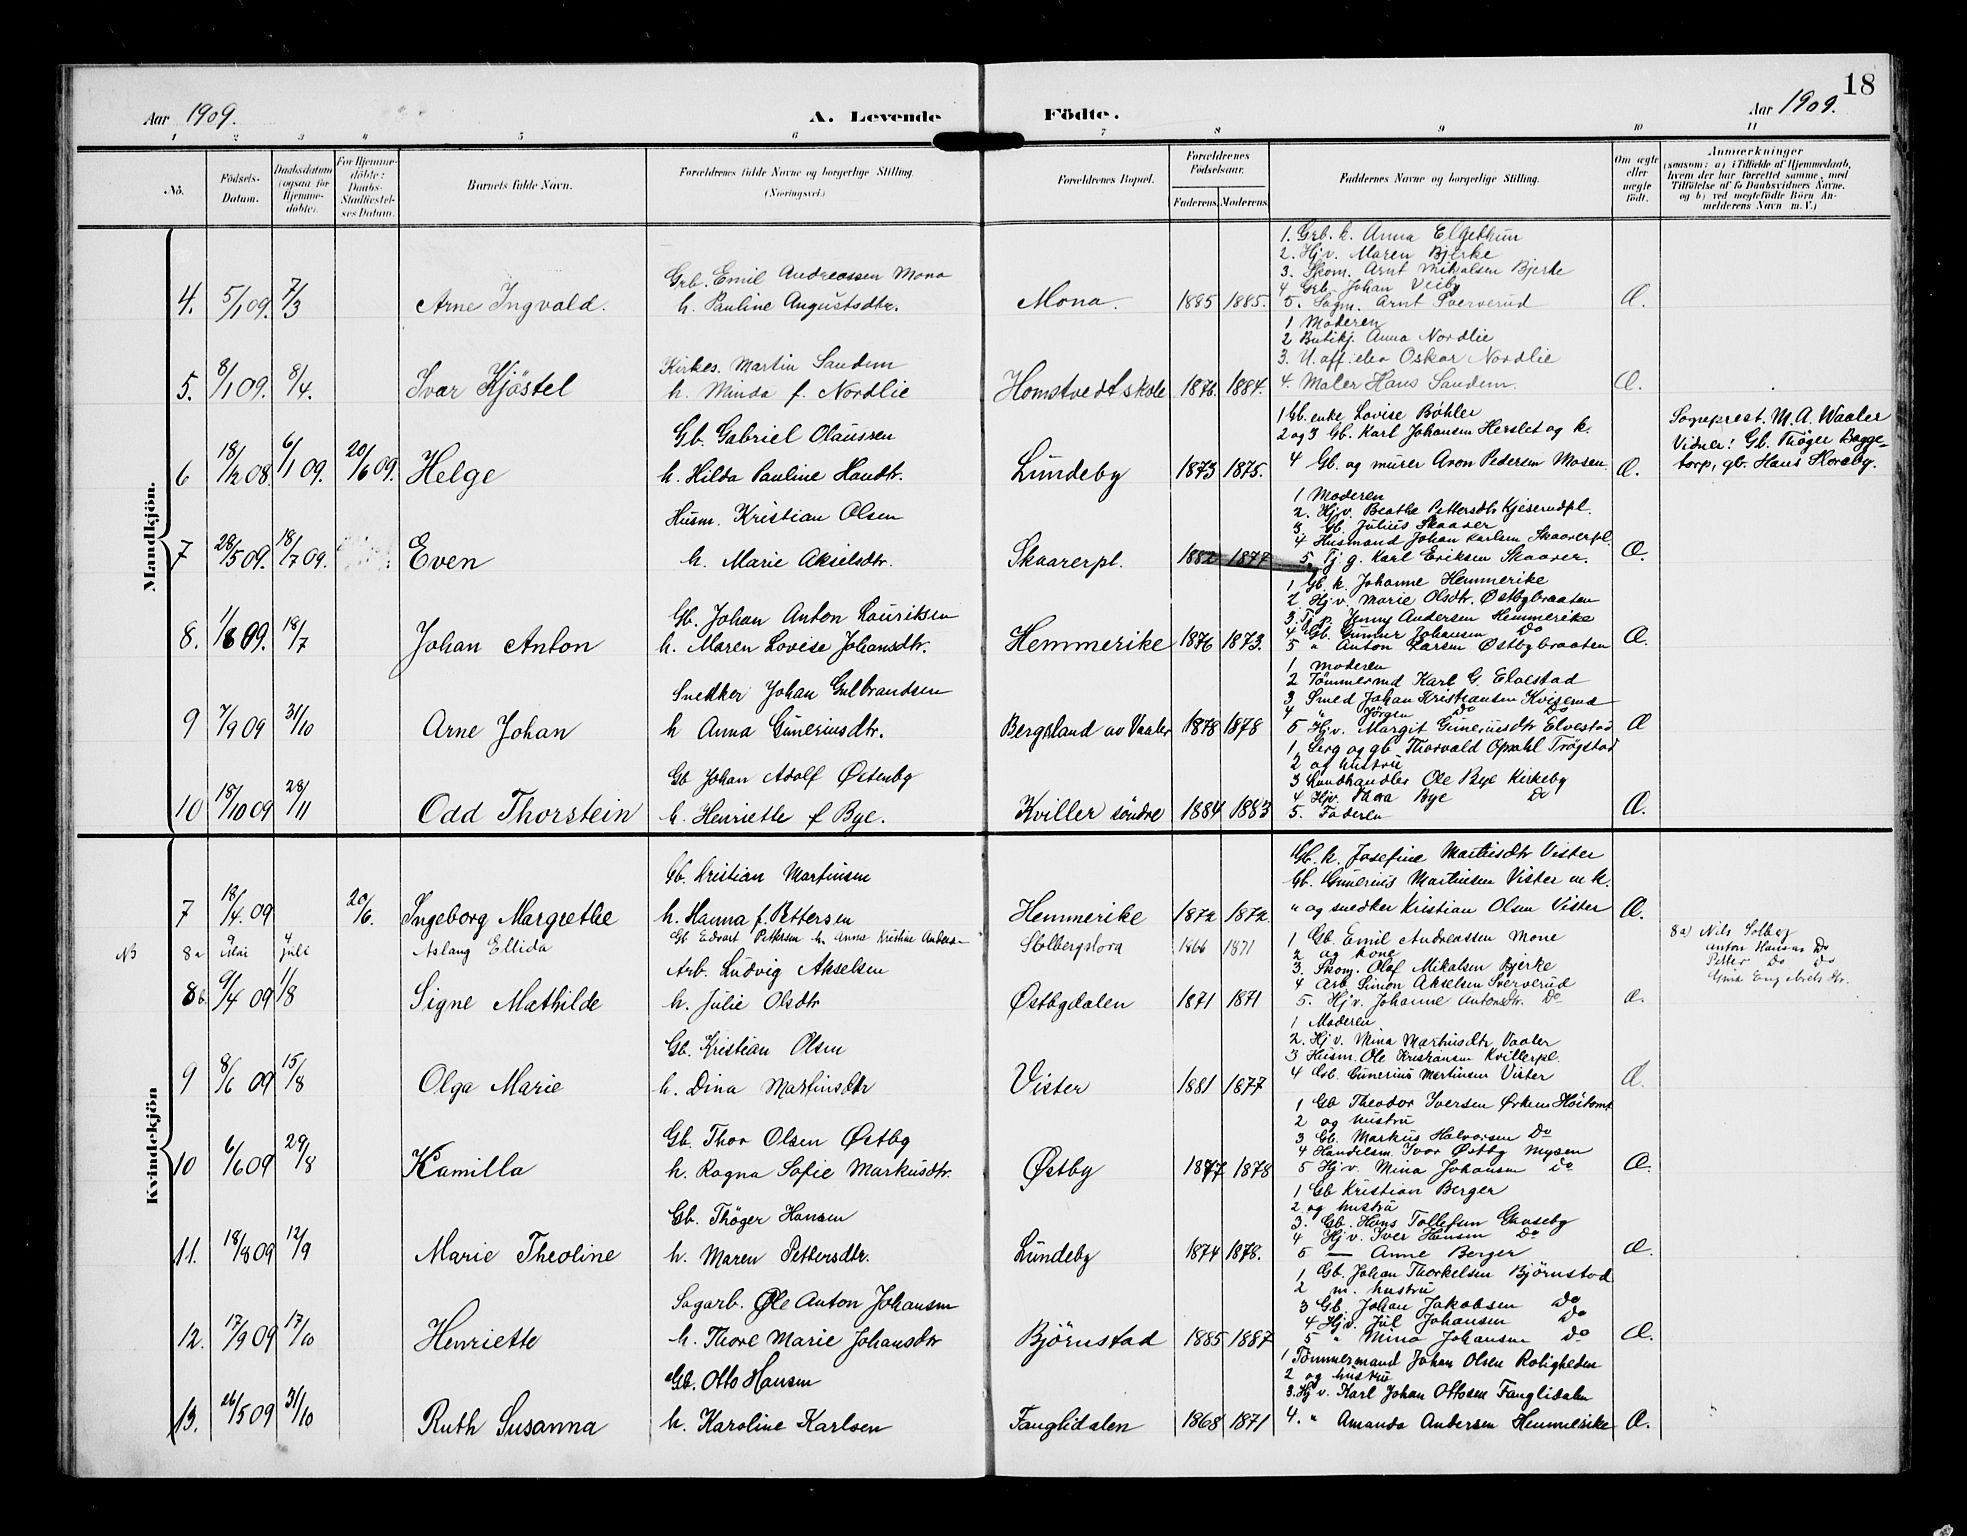 18
Aar 1909.
A. Levende Födte.
Aar 1909.
1 2 3 4 5 6 7 8 9 10 11
No.
Födsels-Datum.
Daabsdatum (ogsaa for Hjemme-döbte).
For Hjemme-döbte: Daabs-Stadfæstel-ses Datum.
Barnets fulde Navn.
Forældrenes fulde Navne og borgerlige Stilling. (Næringsvei)
Forældrenes Bopæl.
Forældrenes Födselsaar.
Faderens. Moderens.
Faddernes Navne og borgerlige Stilling.
Om ægte eller uægte födt.
Anmærkninger
(saasom: a) i Tilfælde af Hjemmedaab, hvem der har forrettet samme, med Tilföielse af to Daabsvidners Navne, og b) ved uægtefödte Börn Anmelderens Navn m. V.)
Mandkjön.
4. 5/1 09. 7/3 Arne Ingvald. Grb. Emil Andreassen Mona
h. Pauline Augustsdtr. Mona. 1885 1885. Æ.
1. Grb. k. Anna Elgethun
2. Hjv. Maren Bjerke
3. Skom. Arnt Mikalsen Bjerke
4 Grb. Johan Veiby
5. Sagm. Arnt Sververud
5. 8/1 09. 8/4. Ivar Kjöstel Kirkes. Martin Sandem
h. Minda f. Nordlie Homstvedt skole 1876. 1884. Æ.
1 Moderen
2 Butikj. Anna Nordlie
3. U. off. elev Oskar Nordlie
4. Maler Hans Sandem.
6 18/12 08. 6/1 09. 20/6 09. Helge Gb. Gabriel Olaussen
h. Hilda Pauline Hansdtr. Lundeby 1873 1875. Æ.
1 Gb. enke Lovise Bøhler
2 og 3 Gb. Karl Johansen Herslet og k.
4 Gb. og murer Aron Pedersen Mosen
Sogneprest M. A. Waaler
Vidner: Gb. Thöger Bagge-
torp, gb. Hans Skoreby.
7 28/5 09. 18/7 09. Even Husm. Kristian Olsen
h. Marie Akselsdtr. Skaarerpl. 1882 1877 Æ.
1 Moderen
2. Hjv. Beathe Pettersdtr Kjeserudpl.
3 Gb. Julius Skaarer
4 Husmand Johan Karlsen Skaarerpl.
5. Tj. g. Karl Eriksen Skaarer.
8. 1/6 09. 18/7 Johan Anton Gb. Johan Anton Lauritsen
h. Maren Lovise Johansdtr. Hemmerike 1876 1873. Æ.
1 Gb. k. Johanne Hemmerike
2. Hjv. Marie Olsdtr. Østbybraaten
3. Tj. p. Jenny Andersen Hemmerike
4 Gb. Gunnar Johansen Do
5 " Anton Larsen Østbybraaten
9 7/9 09 31/10 Arne Johan Snekker Johan Gulbrandsen
h Anna Guneriusdtr. Bergsland av Vaaler 1878 1878 Æ
1 Moderen
2 Tömmermd Karl G. Elvestad
3 Smed Johan Kristiansen Kviserud
4 " Jörgen Do Do
5 Hjv. Margit Guneriusdtr Elvestad
10 18/10 09 28/11 Odd Thorstein Gb Johan Adolf Østenby
h. Henriette f Bye. Kviller söndre 1884 1883 Æ.
1 Serg og gb Thorvald Opsahl Trøgstad
2 og hustru
3 Landhandler Ole Bye Kirkeby
4 Hjv. Thora Bye Do
5. Faderen
Kvindekjön
7 18/4. 09 20/6. Ingeborg Margrethe Gb. Kristian Martinsen
h. Hanna f. Pettersen Hemmerike 1872 1872. Æ.
Gb. k. Josefine Martinsdtr Vister
Gb. Gunerius Martinsen Vister m k.
" og snedker Kristian Olsen Vister
NB 8a Mai 4 juli Aslaug Ellida Gb Edvart Pettersen h. Anna Kristine Anders- Stolbergslora 1866 1871
8a) Nils Solberg
Anton Hansen Do
Petter Do Do
8b. 9/4 09 1/8 Signe Mathilde Arb. Ludvig Akselsen
h. Julie Olsdtr Østbydalen 1871 1871 Æ.
1 Gb. Emil Andreassen Mone
2 og kone
3. Skom. Olaf Mikalsen Bjerke
4 Arb Simon Akselsen Sververud
5. Hjv. Johanne Antonsdtr. Do
9 8/6 09 15/8 Olga Marie Gb. Kristian Olsen
h. Dina Martinsdtr Vister 1881 1877 Æ.
1 Moderen
2. Hjv. Mina Martinsdtr Vaaler
3 Husm. Ole Kristiansen Kvillerpl.
4 Gb. Gunerius Martinsen Vister
10 6/6 09 29/8 Kamilla Gb. Thor Olsen Østby
h. Ragna Sofie Markusdtr. Østby 1877 1878 Æ.
1 Gb Theodor Iversen Ørken Höitomt
2 og hustru
3 Gb. Markus Halvorsen Do
4 Handelsm. Ivar Østby Mysen
5 Hjv. Mina Johansen Do
11. 18/8 09 12/9 Marie Theoline Gb. Thöger Hansen
h. Maren Pettersdtr. Lundeby 1874 1878. Æ.
1 Gb Kristian Berger
2 og hustru
3. Gb. Hans Tollefsen Gaaseby
4 Hjv. Iver Hansen Do
5 — Anne Berger
12. 17/9 09 17/10 Henriette Sagarb. Ole Anton Johansen
h. Thore Marie Johansdtr Björnstad 1885 1887 Æ.
1 Gb. Johan Thorkelsen Björnstad
2 m. hustru
3 Gb. Johan Jakobsen Do
4 Hjv. Jul Johansen Do
5 " Mina Johansen Do
13. 26/5 09 31/10 Ruth Susanna Gb. Otto Hansen
h. Karoline Karlsen Fanglidalen 1868 1871 Æ.
1 Tömmermand Johan Olsen Roligheden
2 og hustru
3. Hjv. Karl Johan Ottosen Fanglidalen
4. " Amanda Andersen Hemmerike